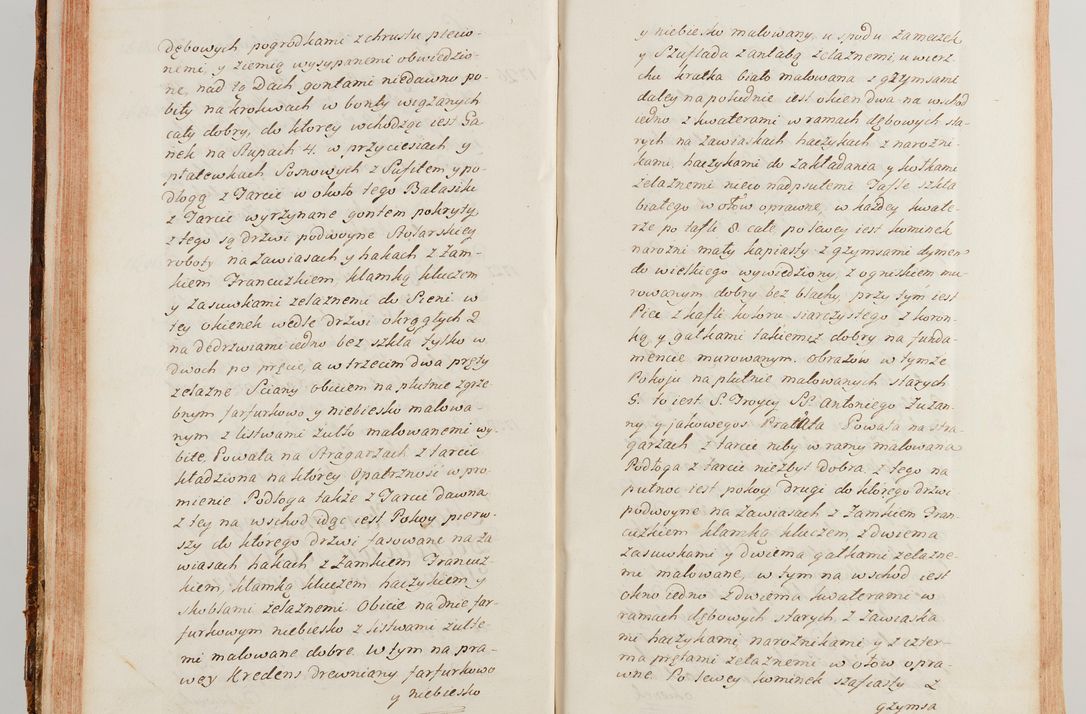 dębowych pogrodkami z chrustu plecio-
nemi, y ziemią wysypanemi obwiedzio-
ne, nad tą Dach gontami niedawno po-
bity na krokwach w bonty wiązanych
cały dobry, do ktorey wchodząc iest Ga-
nek na słupach 4. w przyciesiach y
płatewkach Sosnowych z Sufitem, y po-
dłogą z Tarcic w około tego Balasiki
z Tarcic wyrzynane gontem pokryty,
z tego są drzwi podwoyne Stolarskiey
roboty na zawiasach y hakach z Zam-
kiem Francuzkiem, klamką kluczem
y zasuwkami zelaznemi do Sieni w
tey okienek wedle drzwi okrągłych 2
na dedrzwiami iedno bez szkła tylko w
dwoch po pręcie, a w trzecim dwa pręty
zelazne Sciany obiciem na płutnie zgrze-
bnym farfurkowo y niebiesko malowa
nym z listwami zułto malowanemi wy-
bite, Powała na Stragarzach z tarcic
kładziona na ktorey Opatrzność w pro-
mienie Podłoga także z Tarcic dawna
z tey na wschod idąc iest Pokoy pierw-
szy do ktorego drzwi fasowane na za
wiasach hakach z Zamkiem Francuz-
kiem, klamką kluczem haczykiem, y
skoblami zelaznemi. Obicie na dnie far-
furkowym niebiesko z listwami zułte-
mi malowane dobre. w tym na pra-
wey Kredens drewniany farfurkowo
y niebiesko
y niebiesko malowany, u spodu zameczek
y Szuflada z antabą zelaznemi, u wierz-
chu kratka biało malowana z gzymsami
daley na południe iest okien dwa na wschod
iedno z kwaterami w ramach dębowych sta-
rych na zawiaskach haczykach z narożni-
kami, haczykami do zakładania y kołkami
zelaznemi nieco nadpsutemi Tafle szkła
białego w ołow oprawne, w każdey kwate-
rze po tafli 8 całe, po lewey iest kominek
narożni mały kapiasty z gzymsami dymen
do wielkiego wywiedziony, z ogniskiem mu-
rowanym dobry bez blachy, przy tym iest
Piec z kafli koloru siarczystego z koron-
ką y gałkami takiemiż dobry na funda-
mencie murowanym. obrazow w tymże
Pokoju na płutnie malowanych starych
5. to iest S. Troycy Sº Antoniego Zuzan-
ny, y jakowegoś Prałata Powała na stra-
garzach z tarcic niby w ramy malowana
Podłoga z tarcic niezbyt dobra, z tego na
pułnoc iest pokoy drugi do ktorego drzwi
podwoyne na zawiasach z Zamkiem Fran-
cuzkiem klamką kluczem, z dwiema
zasuwkami y dwiema gałkami zelazne-
mi malowane, w tym na wschod iest
okno iedno z dwiema kwaterami w
ramach dębowych starych, z zawiaska
mi haczykami narożnikami, y z czter-
ma prętami zelaznemi w ołow opra-
wne Po lewey kominek szafiasty z
gzymsa